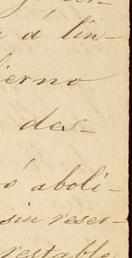 á lin-
ierno
des-
ó aboli-
sin reser-
restable